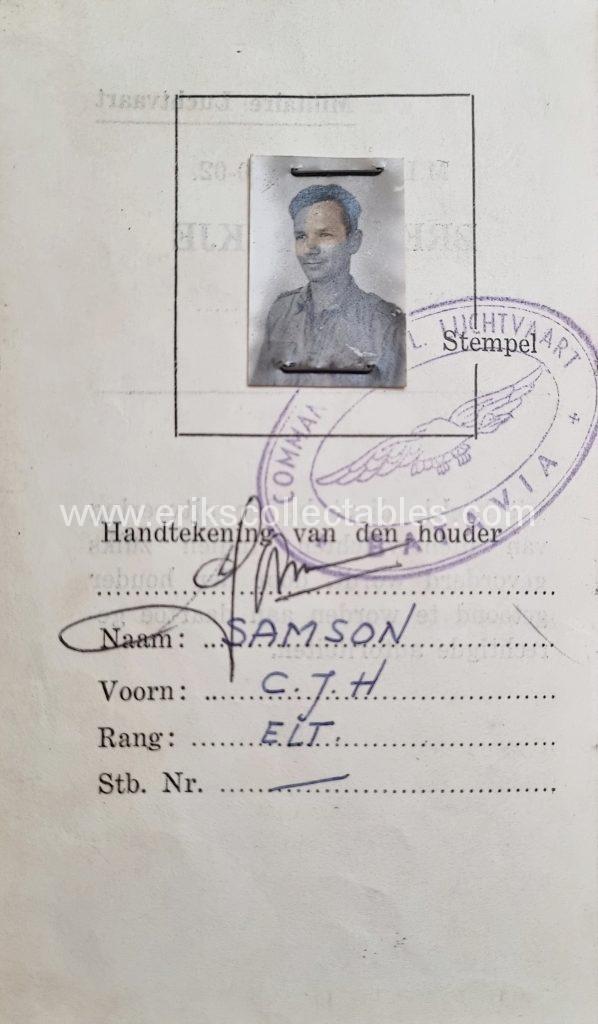 Stempel
COMMAN
L. LUCHTVAART
BATAVIA
www.erikscollectables.com
Handtekening van den houder
Naam: SAMSON
Voorn: C.J.H
Rang: ELT.
Stb. Nr. —